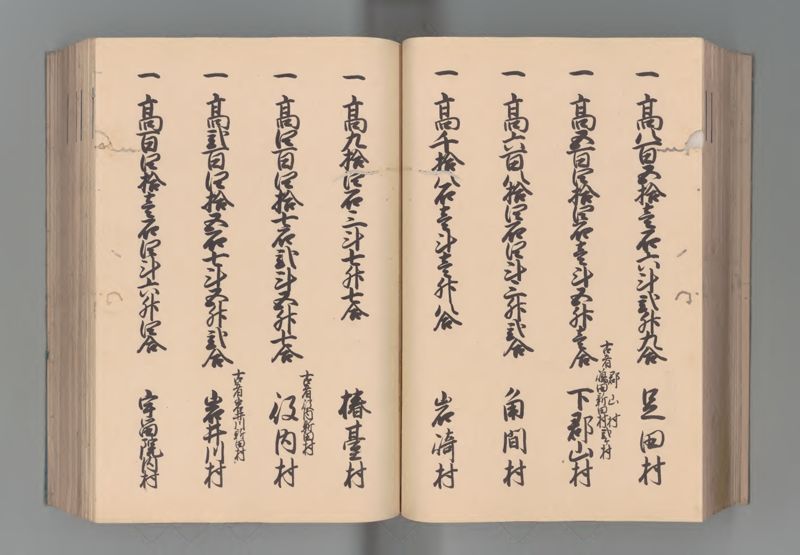 一 高八百五拾壱石六斗弐升九合 足田村
一 高五百四拾四石壱斗五升壱合 下郡山村
古者 郡山村
新田村弐ヶ村
一 高六百八拾四石四斗三升弐合 角間村
一 高千拾八石壱斗壱升八合 岩崎村
一 高九拾四石三斗七升七合 椿臺村
一 高四百四拾七石弐斗五升七合 役内村
古者役内新田村
一 高弐百四拾五石七斗五升弐合 岩井川村
古者岩井川新田村
一 高百四拾壱石四斗六升四合 宇留院内村